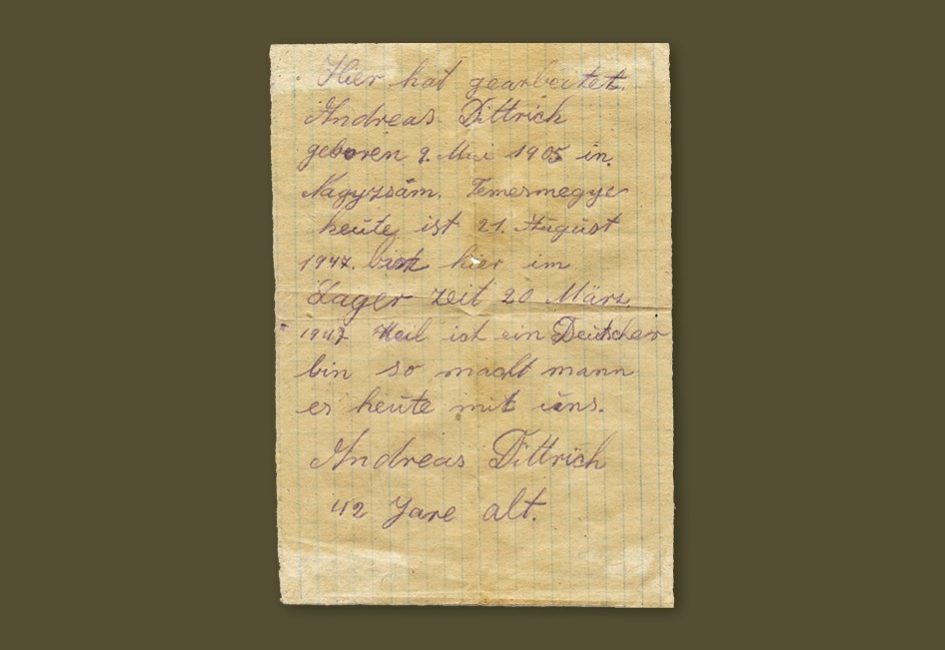 Hier hat gearbeitet.
Andreas Dittrich
geboren 9. Mai 1905 in.
Nagyzsám. Temesmegye
heute ist 21. August
1947. bin hier im
Lager zeit 20 März.
1947 Weil ist ein Deitscher
bin so macht mann
es heute mit uns.
Andreas Dittrich
42 Jare alt.